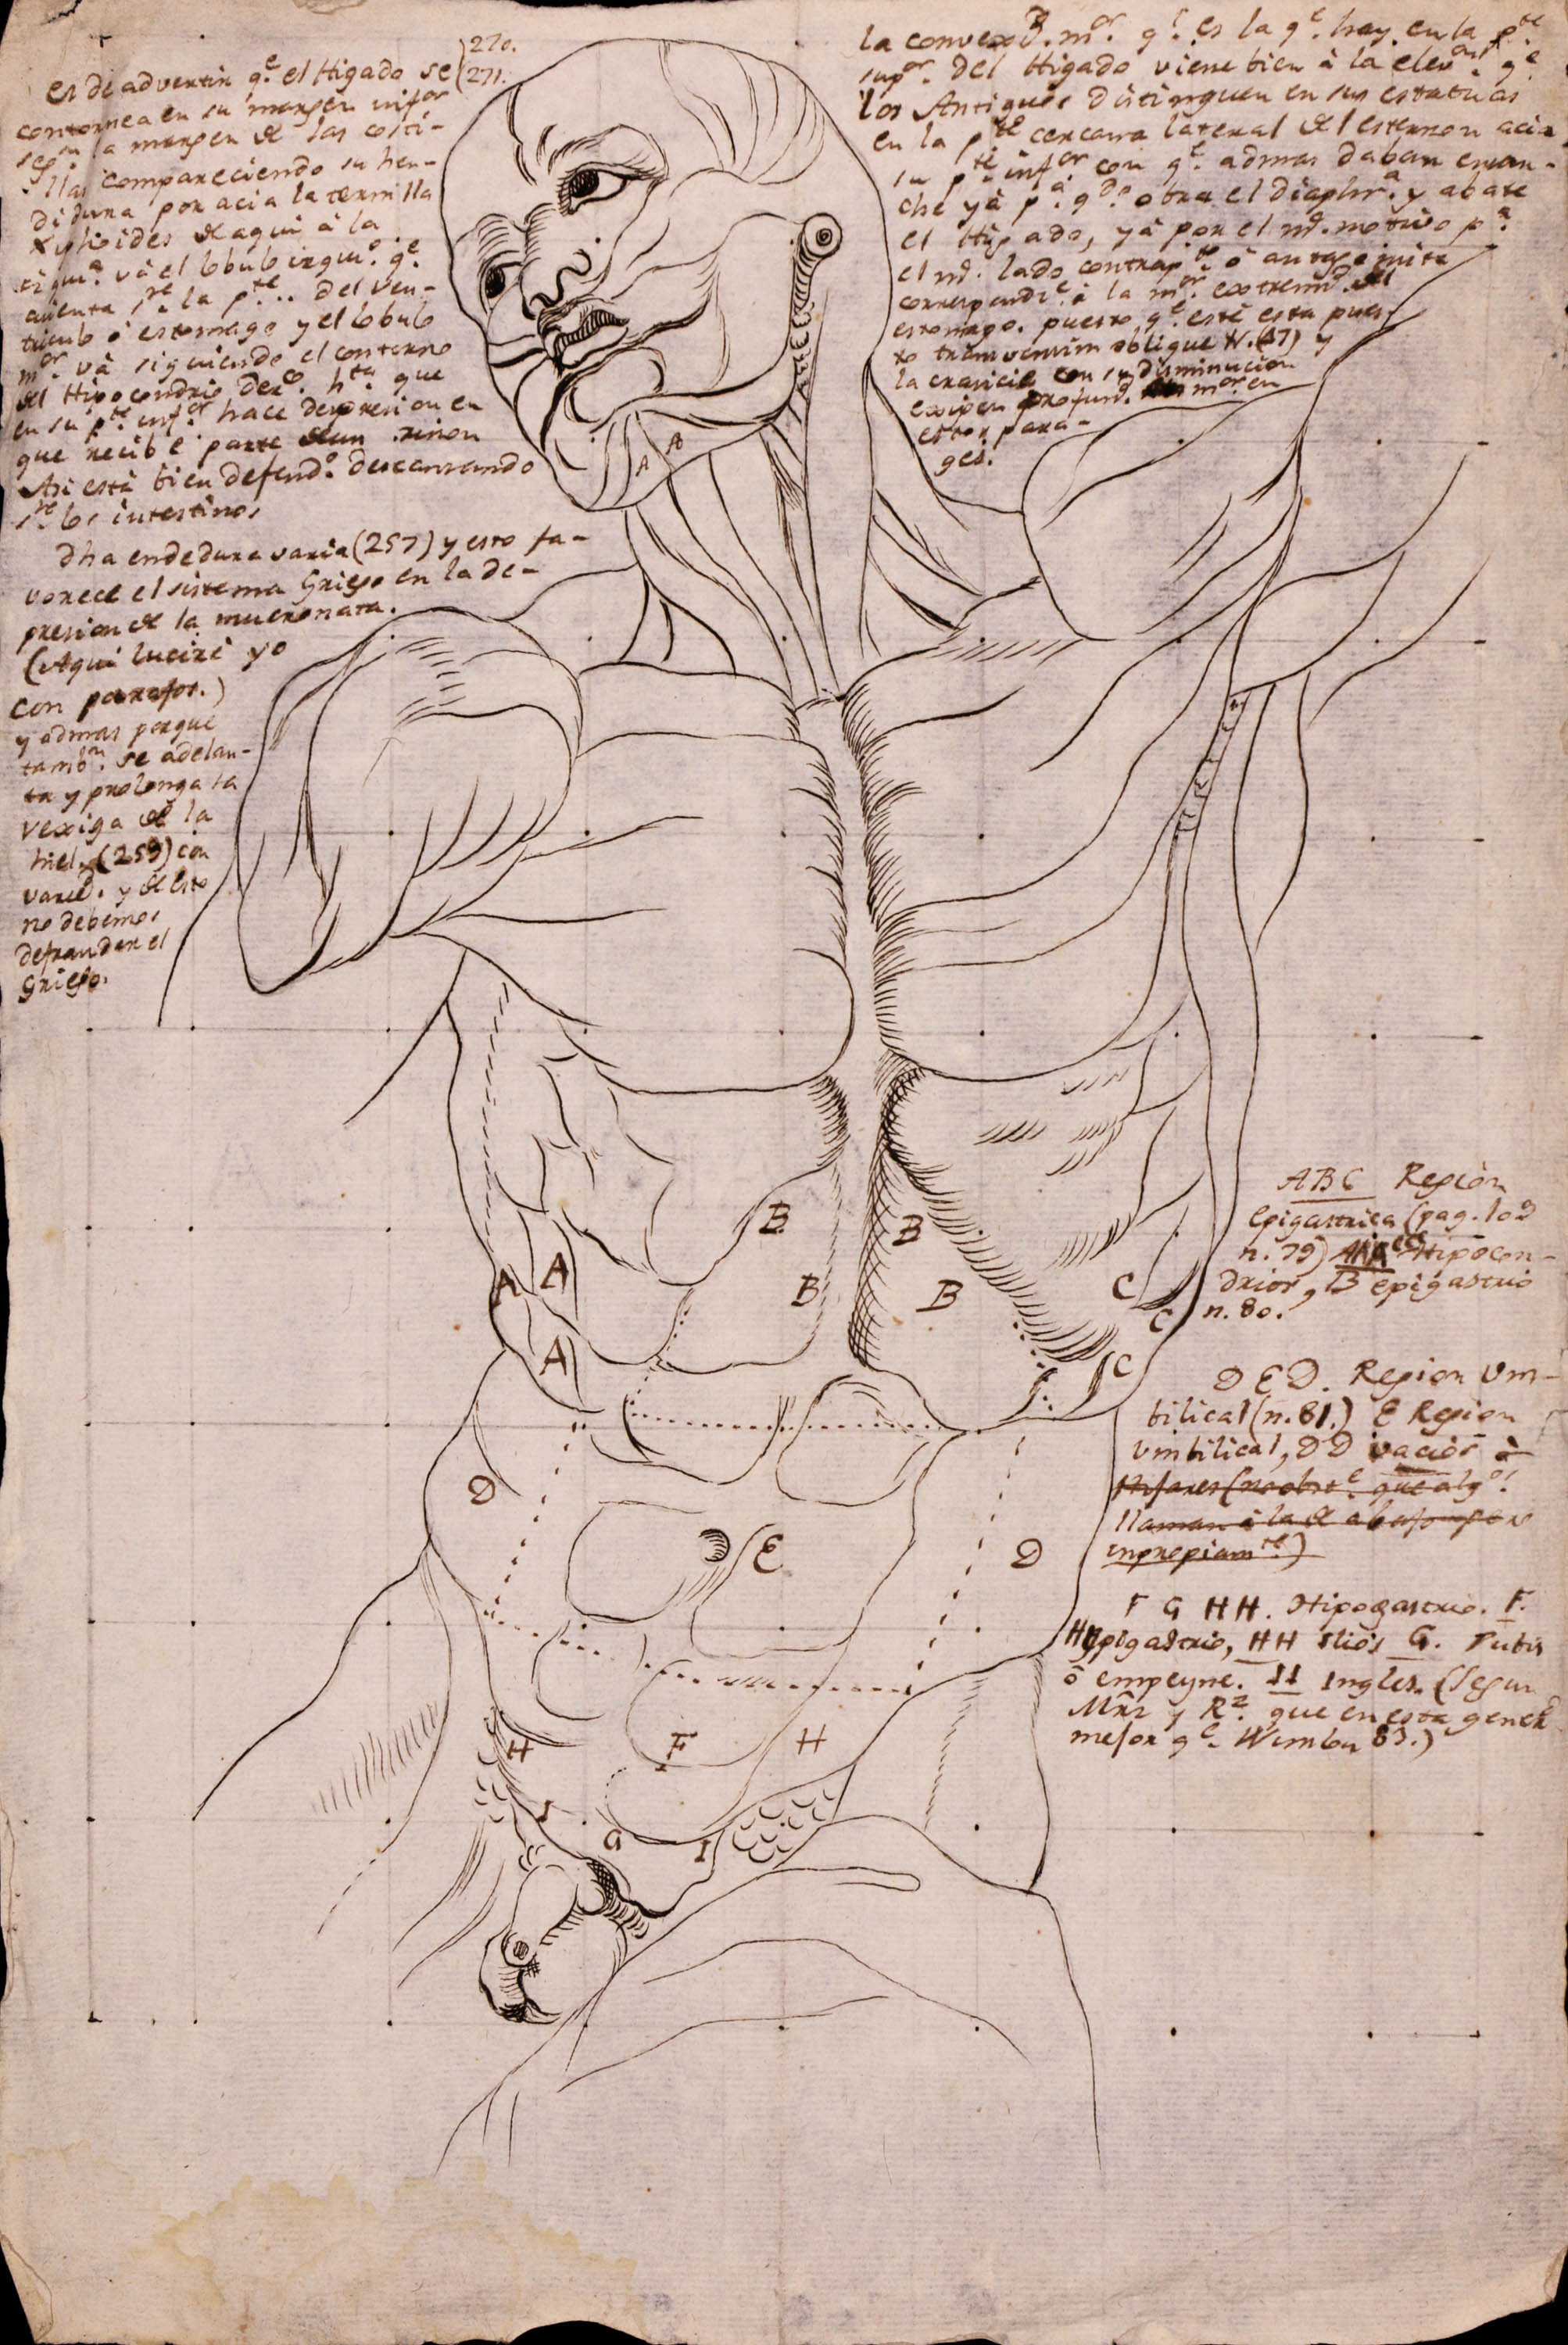 270.
271.
es de advertir q.e el Higado se
contornea en su margen infor
seg.n la margen de las costi-
llas compareciendo su hen-
didura por acia la ternilla
Xiphoides de aqui à la
izqui.a và el lobulo izqui.o q.e
asienta s.re la p.te .. del ven-
triculo ó estomago y el lobulo
m.or và siguiendo el contorno
del Hipocondrio der.o h.ta que
en su p.te inf.or hace depresion en
que recibe parte de un riñon
Asi està bien defend.o descansando
s.re los intestinos
Dha endedura varia (257) y esto fa-
vorece el sistema Griego en la de-
presion de la mucronata.
(Aqui luciré yo
con parrafos.)
y admas porque
tamb.n se adelan-
ta y prolonga la
vexiga de la
hiel, (259) con
varied. y de esto
no debemos
defraudar el
Griego.
la convexd. m.or q.e es la q.e hay en la p.te
sup.or del Higado viene bien à la elev.on q.e
los Antiguos distinguen en sus estatuas
en la p.te cercana lateral del esternon acia
su p.te inf.or con q.e admas daban ensan-
che yà p.a q.do obra el diaphr.a y abate
el Higado, yà por el m.d. motivo p.r
el m.d. lado contrap.to ó antagonista
correspondi.e à la m.or extremid. del
estomago. puesto q.e este esta pues-
to transversim oblique W. (47) y
la crasicie con su disminucion
exigen profund. m.or en
estos para-
ges.
A
A
B
B
B
B
A
A
A
C
C
C
D
E
D
H
F
H
I
G
I
ABC Region
epigastrica (pag. 102
n. 79) AAA CCC Hipocon-
drios, B epigastrio
n. 80.
D E D. Region Um-
bilical (n. 81.) E Region
Umbilical, D D vacios ò
Hijares (no obst.e que alg.os
llaman à la de abajo pero
impropiam.te)
F G HH. Hipogastrio. F.
Hypigastrio, HH Ilios G. Pubis
ó empeyne. II Ingles. (Segun
Mñz y R.z que en esta gener.
mejor q.e Wimbu 83.)